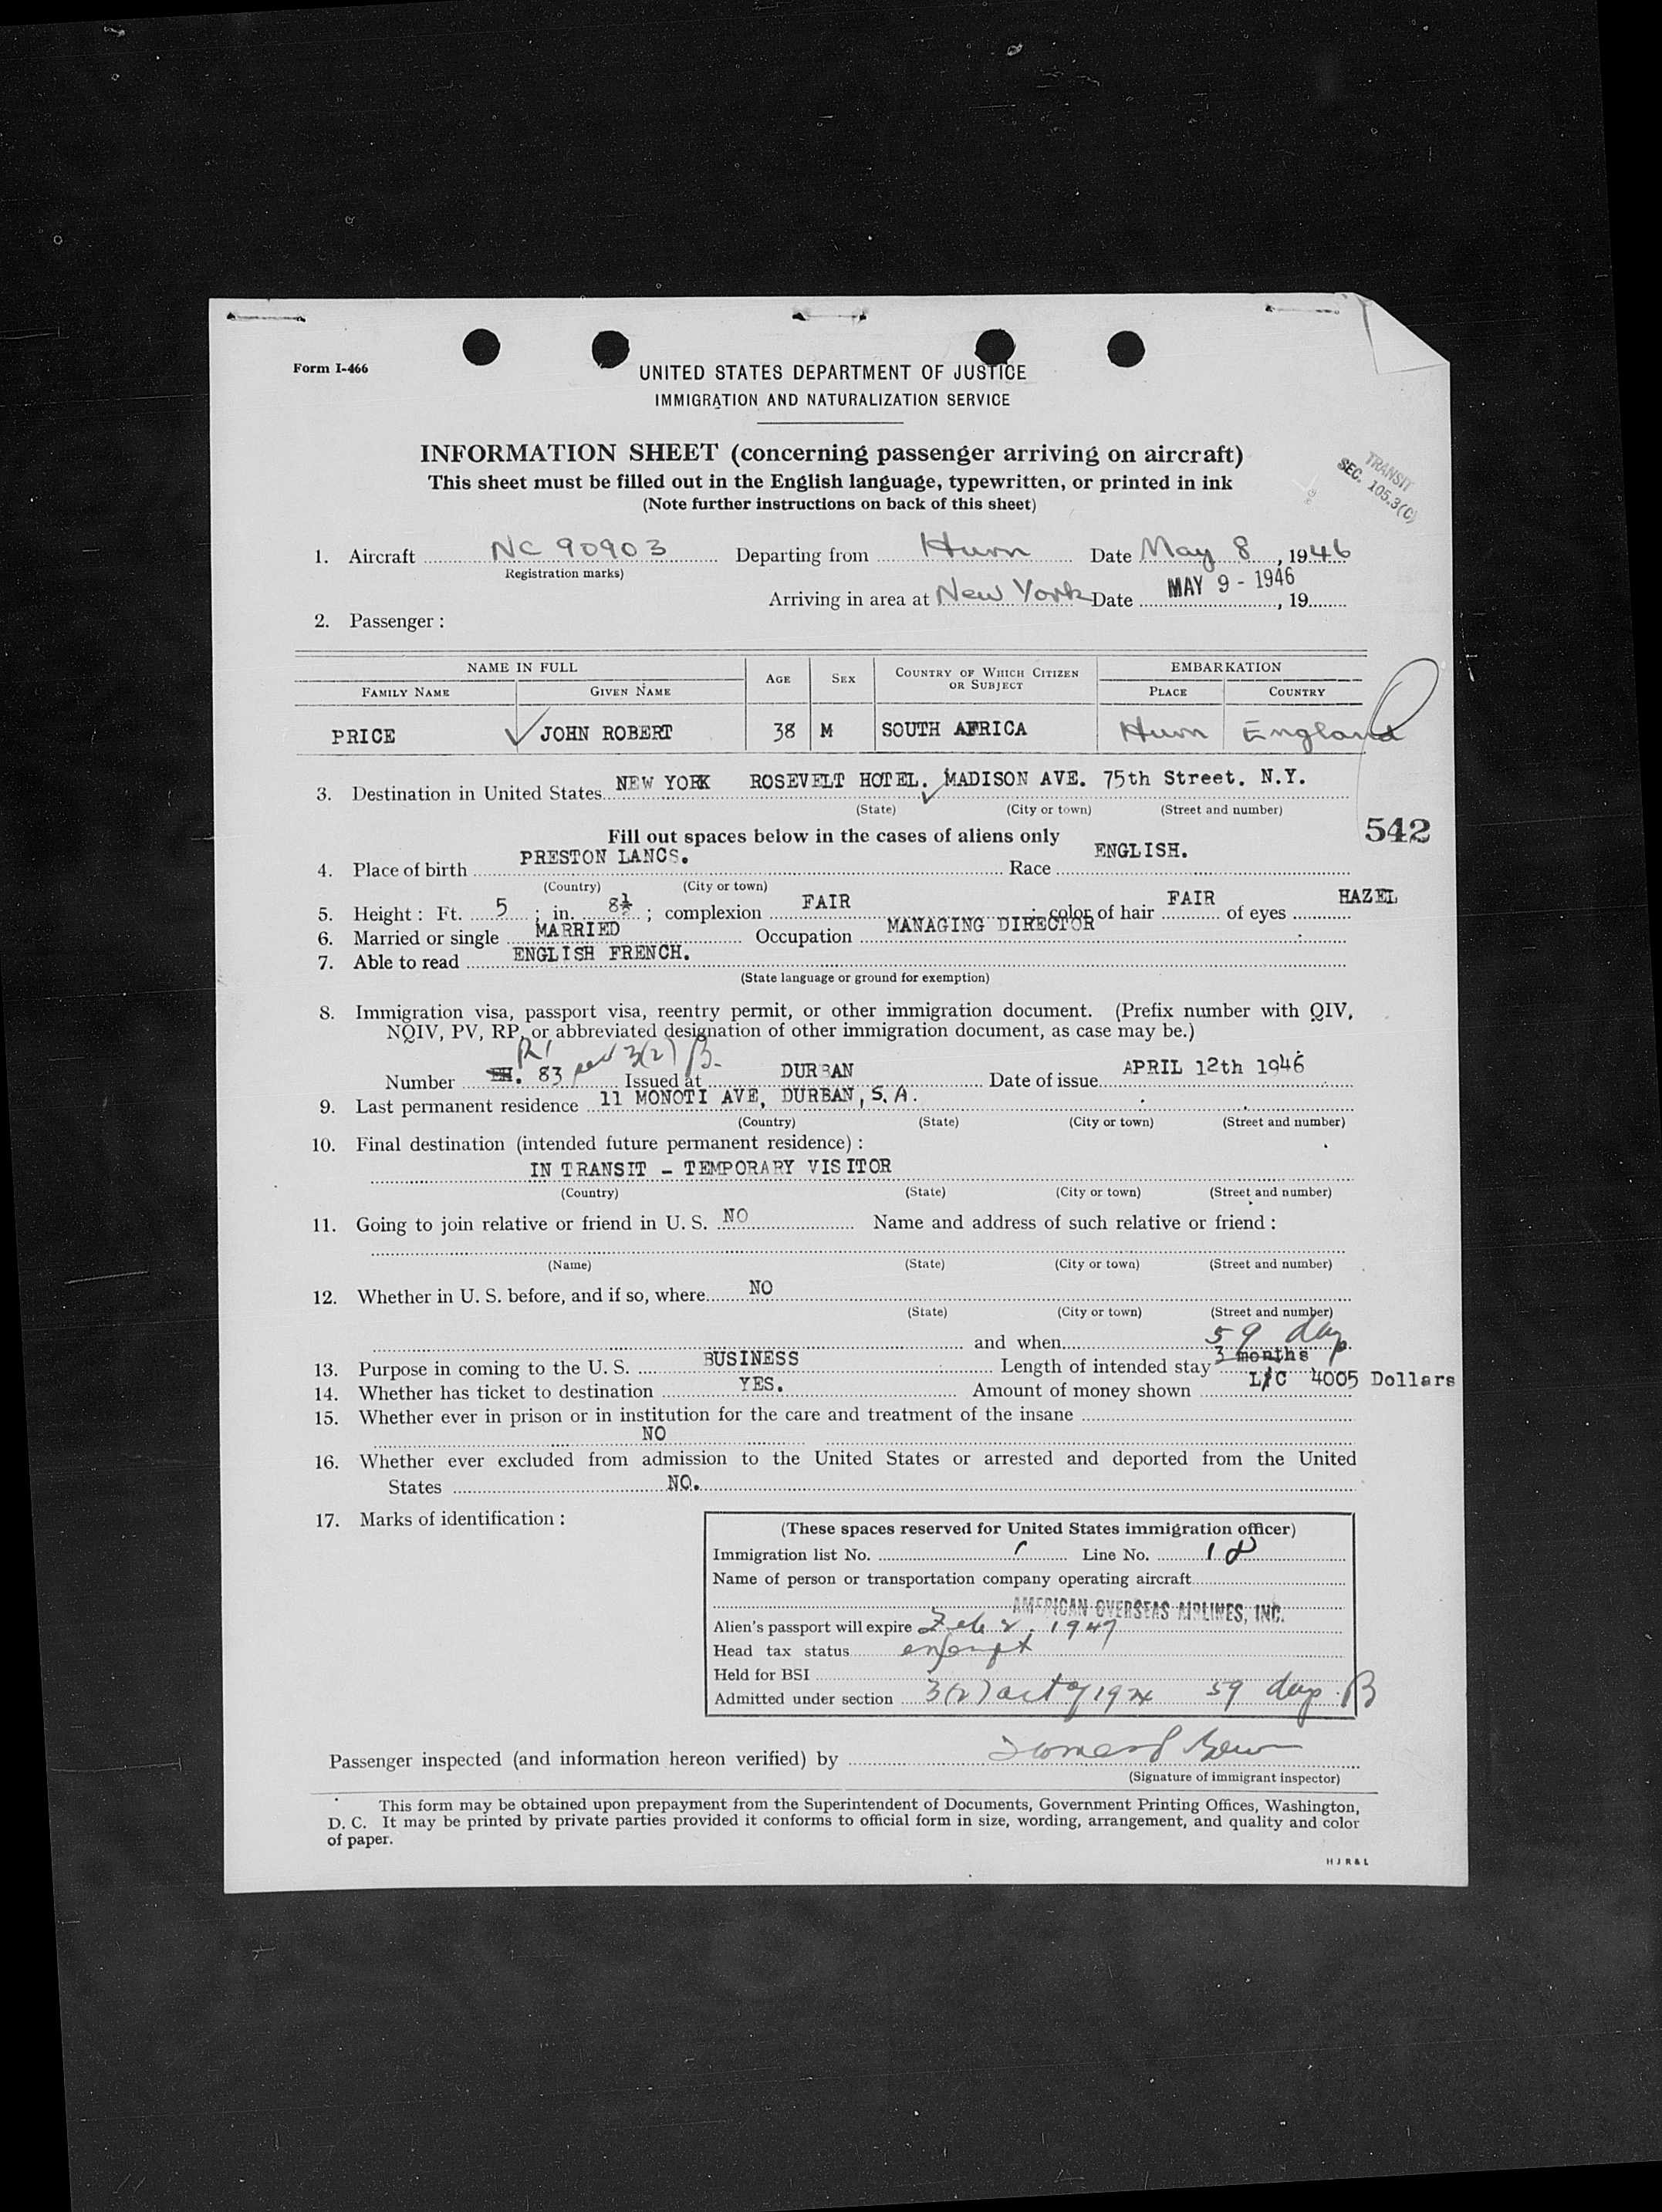 Form I-466
UNITED STATES DEPARTMENT OF JUSTICE
IMMIGRATION AND NATURALIZATION SERVICE
INFORMATION SHEET (concerning passenger arriving on aircraft)
This sheet must be filled out in the English language, typewritten, or printed in ink
(Note further instructions on back of this sheet)
TRANSIT
SEC. 105.3(C)
1. Aircraft NC 90903 Departing from Hurn Date May 8, 1946
Registration marks)
Arriving in area at New York Date MAY 9 - 1946, 19
2. Passenger:
NAME IN FULL AGE SEX COUNTRY OF WHICH CITIZEN OR SUBJECT EMBARKATION
FAMILY NAME GIVEN NAME PLACE COUNTRY
PRICE JOHN ROBERT 38 M SOUTH AFRICA Hurn England
3. Destination in United States NEW YORK ROSEVELT HOTEL. MADISON AVE. 75th Street. N.Y.
(State) (City or town) (Street and number)
542
Fill out spaces below in the cases of aliens only
4. Place of birth PRESTON LANCS. Race ENGLISH.
(Country) (City or town)
5. Height: Ft. 5; in. 8½; complexion FAIR; color of hair FAIR of eyes HAZEL
6. Married or single MARRIED Occupation MANAGING DIRECTOR
7. Able to read ENGLISH FRENCH.
(State language or ground for exemption)
8. Immigration visa, passport visa, reentry permit, or other immigration document. (Prefix number with QIV,
NQIV, PV, RP, or abbreviated designation of other immigration document, as case may be.)
Number 83 3(2) B. Issued at DURBAN Date of issue APRIL 12th 1946
9. Last permanent residence 11 MONOTI AVE, DURBAN, S.A.
(Country) (State) (City or town) (Street and number)
10. Final destination (intended future permanent residence):
IN TRANSIT - TEMPORARY VISITOR
(Country) (State) (City or town) (Street and number)
11. Going to join relative or friend in U. S. NO Name and address of such relative or friend:
(Name) (State) (City or town) (Street and number)
12. Whether in U. S. before, and if so, where NO
(State) (City or town) (Street and number)
and when
59 days
13. Purpose in coming to the U. S. BUSINESS Length of intended stay 3 months
14. Whether has ticket to destination YES. Amount of money shown L/C 4005 Dollars
15. Whether ever in prison or in institution for the care and treatment of the insane
NO
16. Whether ever excluded from admission to the United States or arrested and deported from the United
States NO.
17. Marks of identification:
(These spaces reserved for United States immigration officer)
Immigration list No. 1 Line No. 18
Name of person or transportation company operating aircraft
AMERICAN OVERSEAS AIRLINES, INC.
Alien's passport will expire Feb 2, 1947
Head tax status exempt
Held for BSI
Admitted under section 3(2) act of 1924 59 days B
Passenger inspected (and information hereon verified) by
(Signature of immigrant inspector)
This form may be obtained upon prepayment from the Superintendent of Documents, Government Printing Offices, Washington,
D. C. It may be printed by private parties provided it conforms to official form in size, wording, arrangement, and quality and color
of paper.
H J R & L